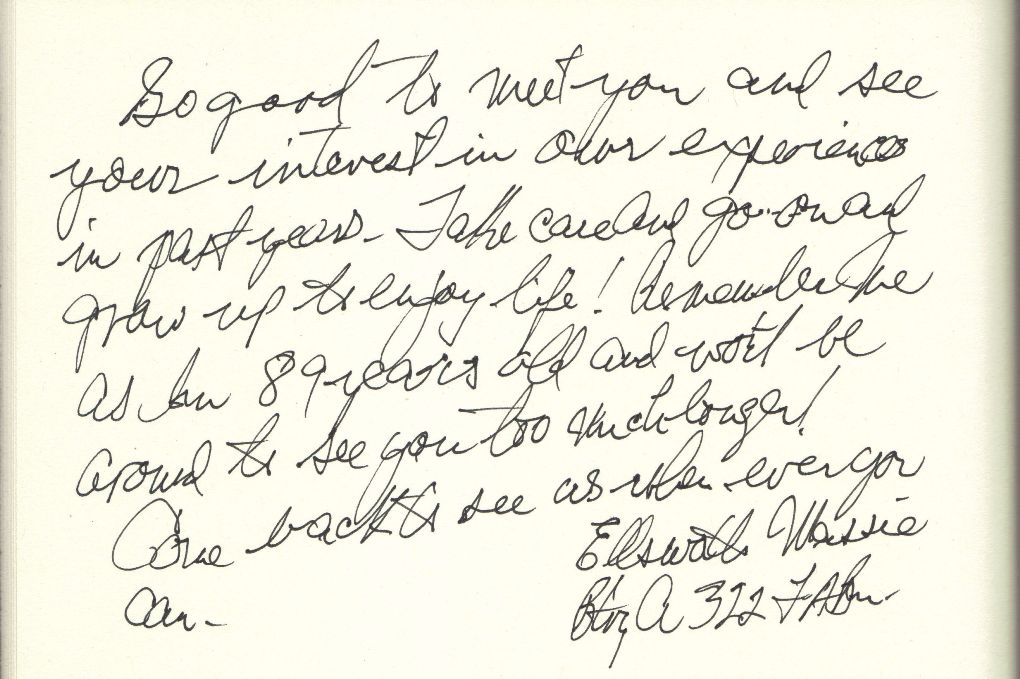 So good to meet you and see
your interest in our experiences
in past years - Take care and go on and
grow up to enjoy life! Remember me
as I'm 89 years old and won't be
around to see you too much longer!
Come back to see us when ever you
can -
Ellsworth Massie
Btry A 322 FA Bn -